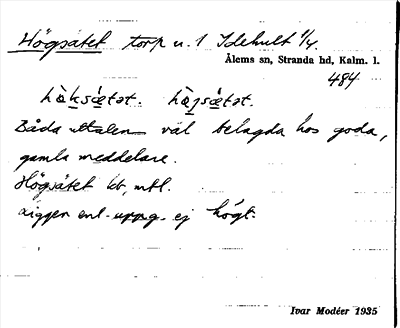 Högsätet torp u. 1 Idehult 1/4.
Ålems sn, Stranda hd, Kalm. l.
484
hö̀ksǽtət. hö̀gsǽtət.
Båda uttalen väl belagda hos goda,
gamla meddelare.
Högsätet kb, mtl.
Ligger enl. uppg. ej högt.
Ivar Modéer 1935